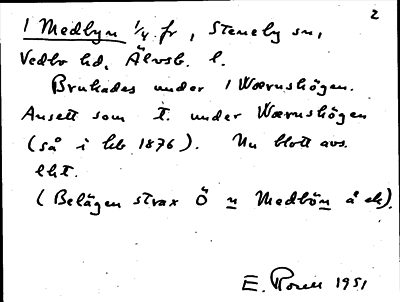 2
1 Medbyn 1/4 fr, Steneby sn,
Vedbo hd, Älvsb. l.
Brukades under 1 Wærnshögen.
Ansett som t. under Wærnshögen
(så i hb 1876). Nu blott avs.
lht.
(Belägen strax Ö n Medbön å ek).
E. 1951